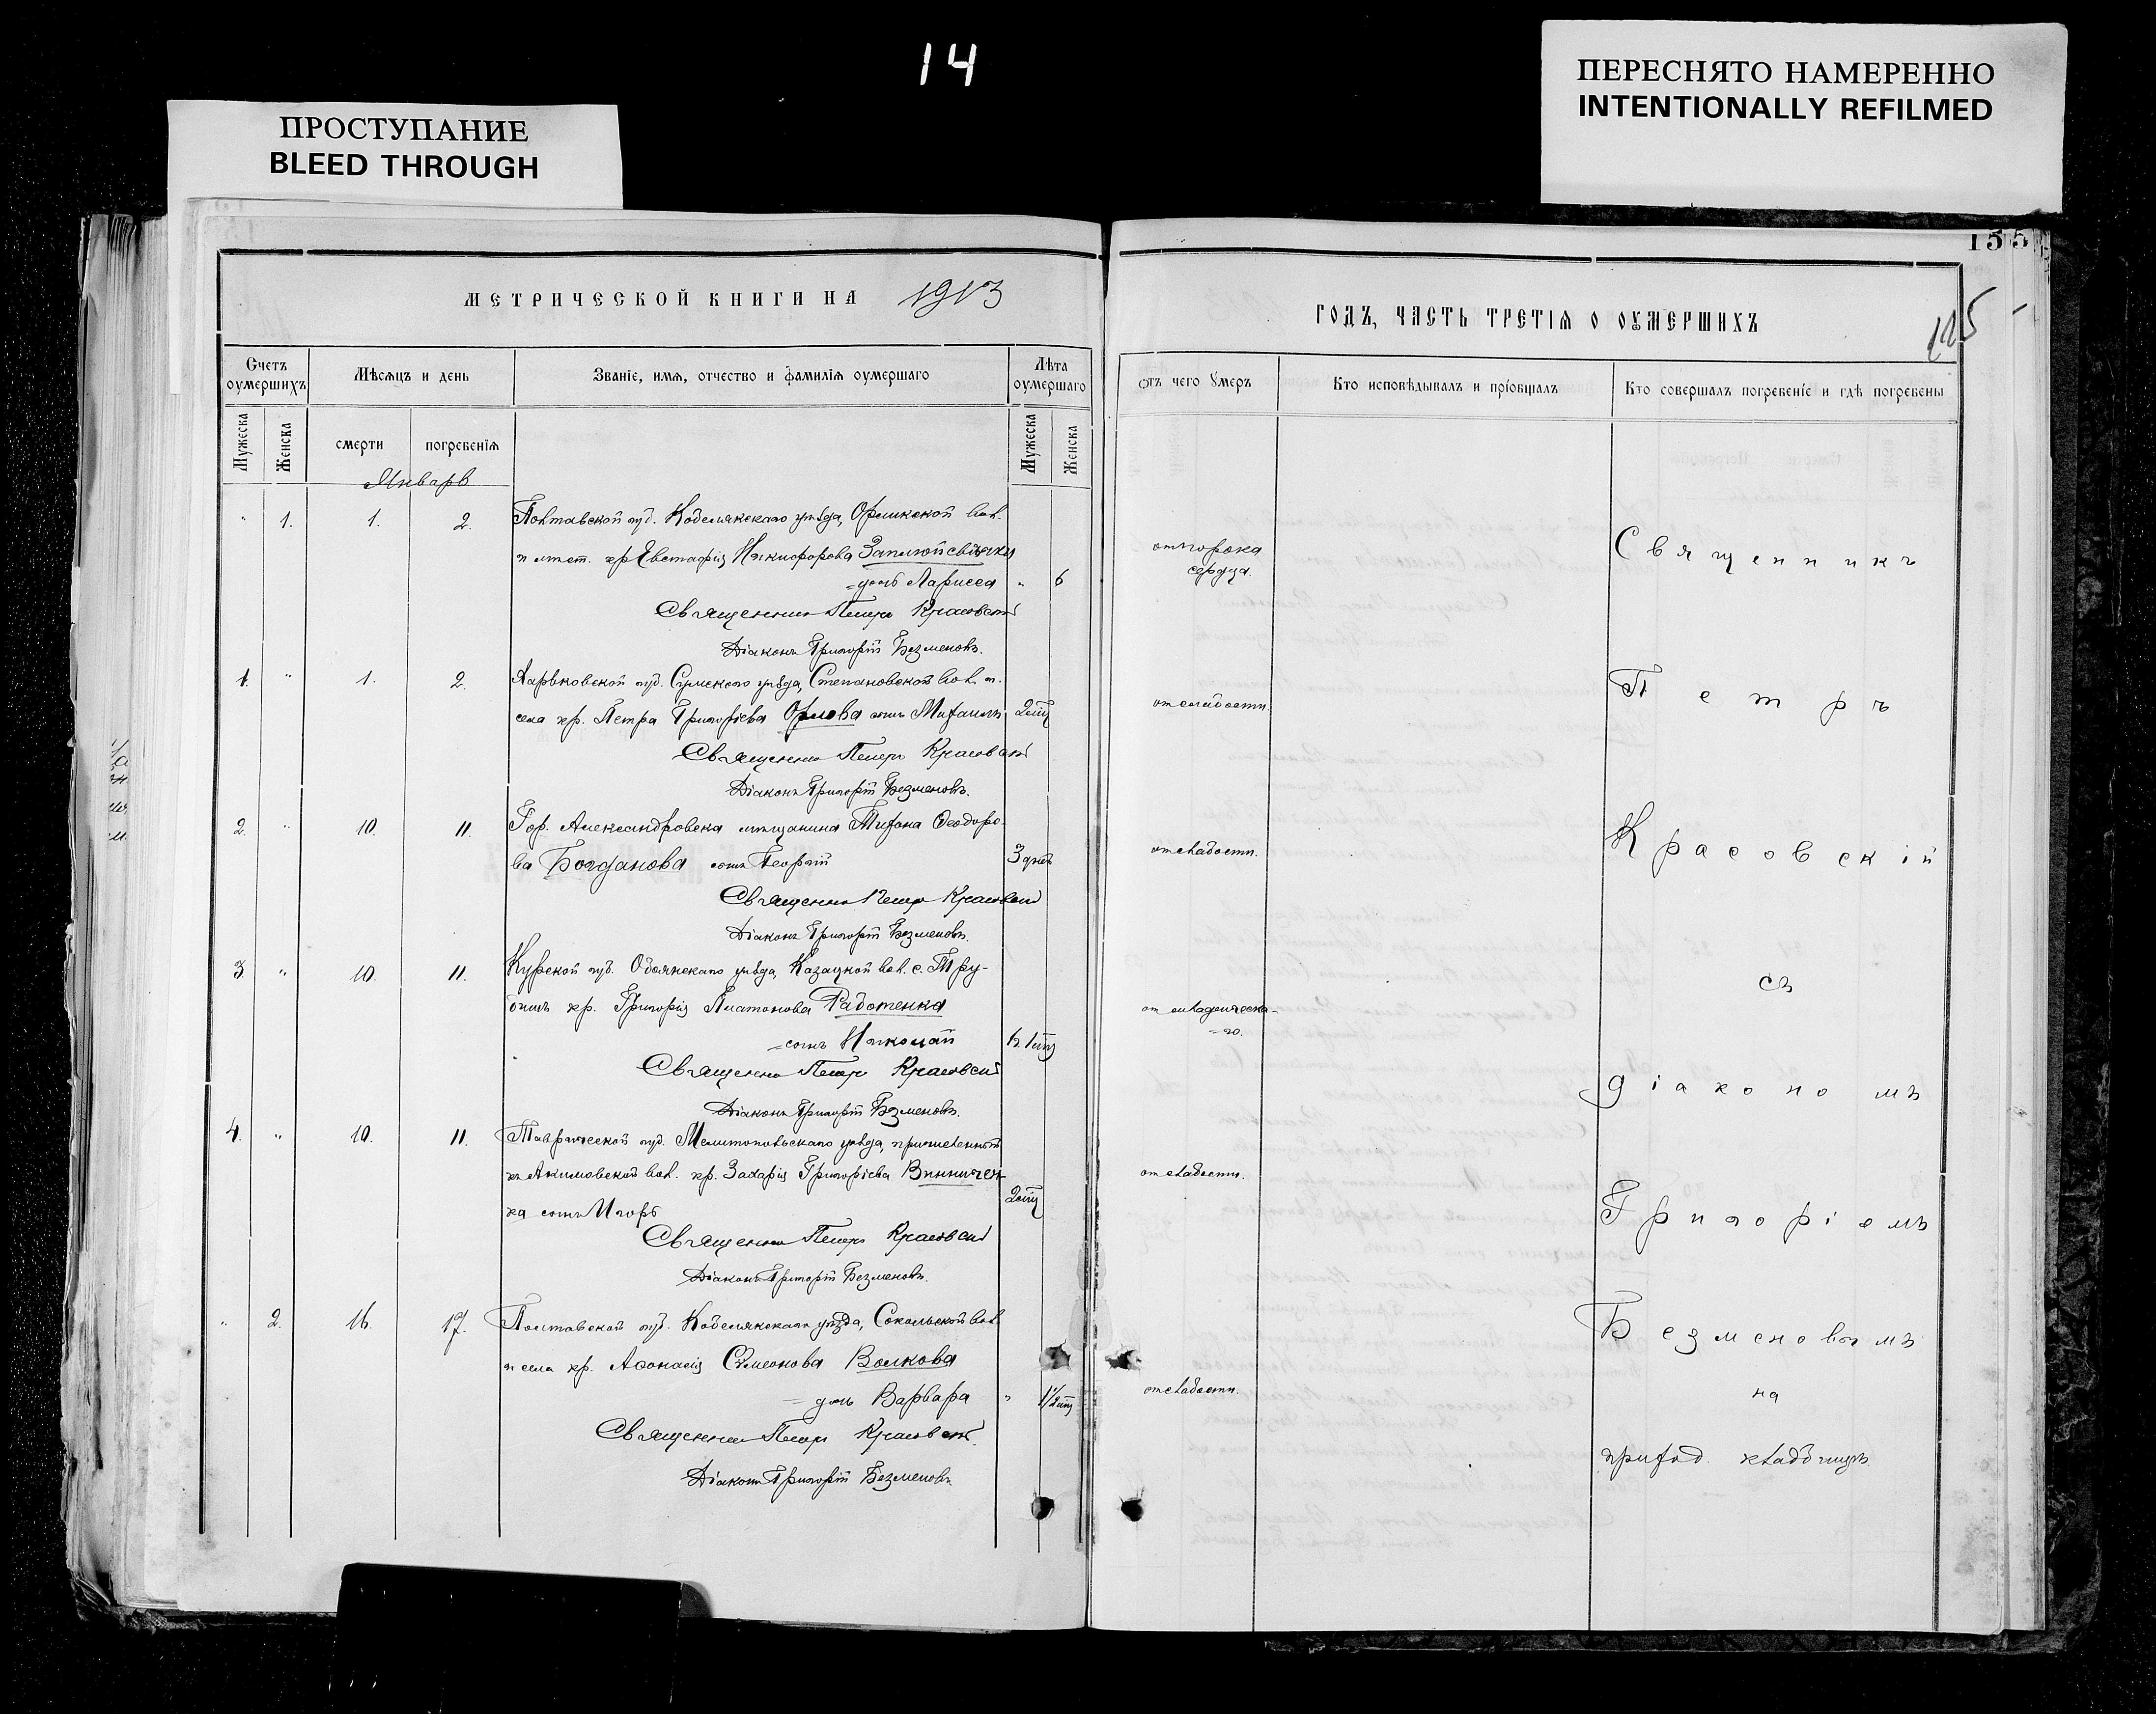 14
ПРОСТУПАНИЕ
BLEED THROUGH
ПЕРЕСНЯТО НАМЕРЕННО
INTENTIONALLY REFILMED
МЕТРИЧЕСКОЙ КНИГИ НА 1913
Счетъ оумершихъ
Мѣсяцъ и день
Званіе, имя, отчество и фамилія оумершаго
Лѣта оумершаго
Мужеска
Женска
смерти
погребенія
Мужеска
Женска
Январь
" 1. 1. 2. Полтавской губ. Кобелякскаго уѣзда, Орликской вол.
и мест. кр. Евстафія Никифорова
=дочь Лариса " 6
Священникъ Петръ Красовскій
Діаконъ Григорій Безменовъ.
1. " 1. 2. Харьковской губ. Сумскаго уѣзда, Степановской вол. и
села кр. Петра Григорієва Орлова сынъ Михаилъ 2
Священникъ Петръ Красовскій
Діаконъ Григорій Безменовъ.
2. " 10. 11. Гор. Александровска мѣщанина Тихона Ѳеодоро-
ва Богданова сынъ Георгій 3 дней
Священникъ Петръ Красовскій
Діаконъ Григорій Безменовъ.
3 " 10. 11. Курской губ. Обоянскаго уѣзда, Казацкой вол. с. Тру-
бицъ кр. Григорія Платонова Работенка
=сынъ Николай
Священникъ Петръ Красовскій
Діаконъ Григорій Безменовъ.
4. " 10. 11. Таврической губ. Мелитопольскаго уѣзда, причисленный
къ Акимовской вол. кр. Захарія Григорієва Винничен-
ка сынъ Игорь 2
Священникъ Петръ Красовскій
Діаконъ Григорій Безменовъ.
" 2. 16. 17. Полтавской губ. Кобелякскаго уѣзда, Сокольской вол.
и села кр. Аѳонасія Сѵмеонова Волкова
= дочь Варвара " 1/2
Священникъ Петръ Красовскій
Діаконъ Григорій Безменовъ
155
ГОДЪ, ЧАСТЬ ТРЕТІЯ О ОУМЕРШИХЪ
Отъ чего умеръ
Кто исповѣдывалъ и пріобщалъ
Кто совершалъ погребеніе и гдѣ погребены
от порока
сердца.
от слабости.
от слабости.
от младенческа-
=го.
от слабости.
от слабости.
Священникъ
Петръ
Красовскій
съ
діакономъ
Григоріемъ
Безменовымъ
на
приход. кладбищѣ.